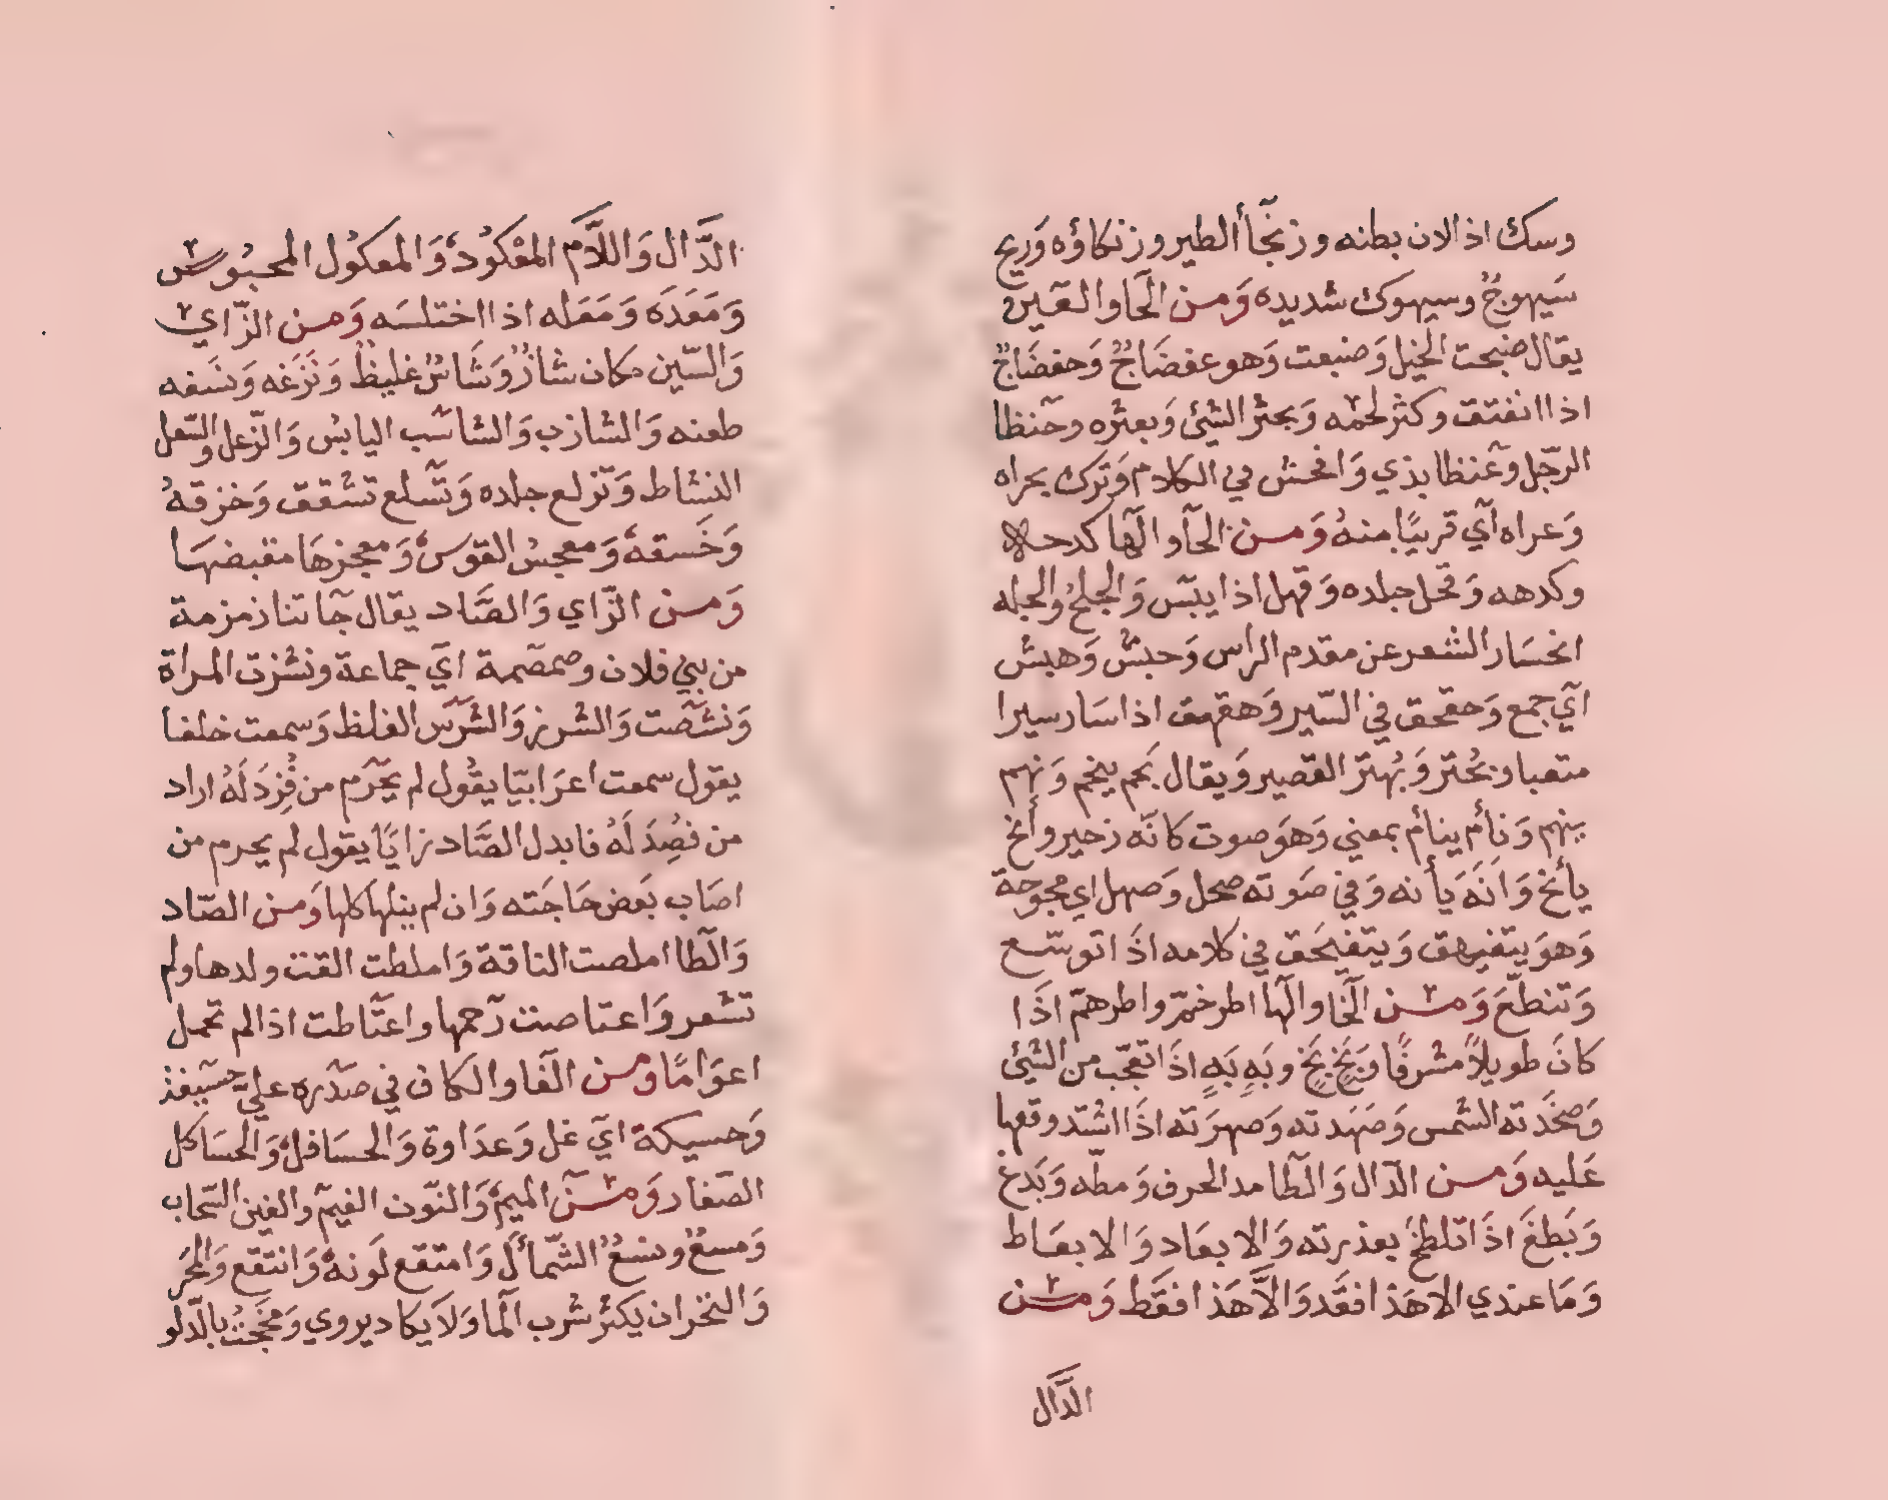 وسك اذا لان بطنه وزنجأ الطير وزنكاؤه وَريح
سَيهوجٌ وسيهوك شديده وَمن الحَا والعَين
يقال ضبحت الخيل وَضبعت وَهو عفضَاجٌ وَحفضَاجٌ
اذا انفتق وكثر لحمه وَبحثر الشيئ وَبعثره وحَنظا
الرّجل وعَنظا بذي وَافحش في الكلام وَترك بحراه
وَعراه آي قريبًا منهُ وَمـن الحَا والَها كدحـه
وكدهه وَقحل جلده وَقهل اذا يبَس وَالجلحُ والجله
انحسَار الشعر عن مقدم الراس وَحبش وَهبش
آي جمع وَحقحق في السّير وَهقهق اذا سَار سيرا
متعبا وبحُتر وَبُهتر القصير وَيقال نحم ينحم وَنهم
ينهم وَنأم ينأم بمعني وَهوَ صوت كانّه زحير وأنح
يأنح وَانَهَ يَأنه وَفي صَوته صحل وَصهل اي بحوحة
وَهوَ يتفيهق وَيتفيحَق في كلامه اذَا توسّـع
وَتنطّعَ وَمـن الَخا والَها اطرخمّ واطرهمّ اذَا
كانَ طويلاً مشرفًا وَبَخٍ بَخٍ وبَهٍ بَهٍ اذَا تعجّب من الشيئ
وَصخَدته الشمس وَصَهَدته وَصهرَته اذَا اشتد وقعها
عَليه وَمـن الدَال وَالطَا مد الحرف وَمطّه وَبَدغ
وَبَطغَ اذَا تلطخَ بعذرته وَالابعَاد وَالابعَـاط
وَمَا عندي الاهَذا فقَد وَالاَّ هَذا فقَط وَمـن
الدَّال
الدَّال وَاللَّام المعْكُودُ وَالمعكُول المحبُوس
وَمَعَدَه وَمَعَله اذا اختلسَه وَمـن الزّاي
وَالسّين مكان شازٌ وَشَاسٌ غليظٌ وَنَزَغه وَنسَغه
طعنه وَالشازب وَالشاسَب اليابس وَالزّعل والسّعل
النشاط وَتزلع جلده وَتسَلع تشقق وَخزقهُ
وَخَسقهُ وَمعجسُ القوسُ وَمعجزهَا مقبضهَـا
وَمـن الزّاي وَالصَّاد يقال جَاتنا زمزمة
من بني فلان وصمصَمة ايَ جماعة ونشزت المراة
وَنشصَت وَالشرز وَالشرَس الغلظ وَسمعت خلفا
يقول سمعت اعرَابيّا يقُول لم يحَرم من فُزِدَ لَهُ اراد
من فصُدَ لَهُ فابدل الصَّاد زايًا يقول لم يحرم من
اصَاب بَعض حَاجَته وَان لم ينلها كلها وَمـن الصّاد
وَالطَا املصت الناقة وَاملطت القت ولدها ولم
تشعر وَاعتاصت رَحمها واعتاطت اذا لم تحمل
اعوَامًا ومـن الفَا والكاف في صدَره عليّ حسيفة
وَحسيكة ايَ غل وَعدَاوة وَالحسَافلُ وَالحسَاكل
الصّغار وَمـن الميمُ وَالنّون الغيمُ والغين السّحاب
وَمسعٌ ونسعٌ الشّمأل وَامتقع لَونهُ وَانتقع وَالمجَر
وَالنجر ان يكثر شرب المَا وَلَا يكاد يروي وَمخَجتُ بالدّلو